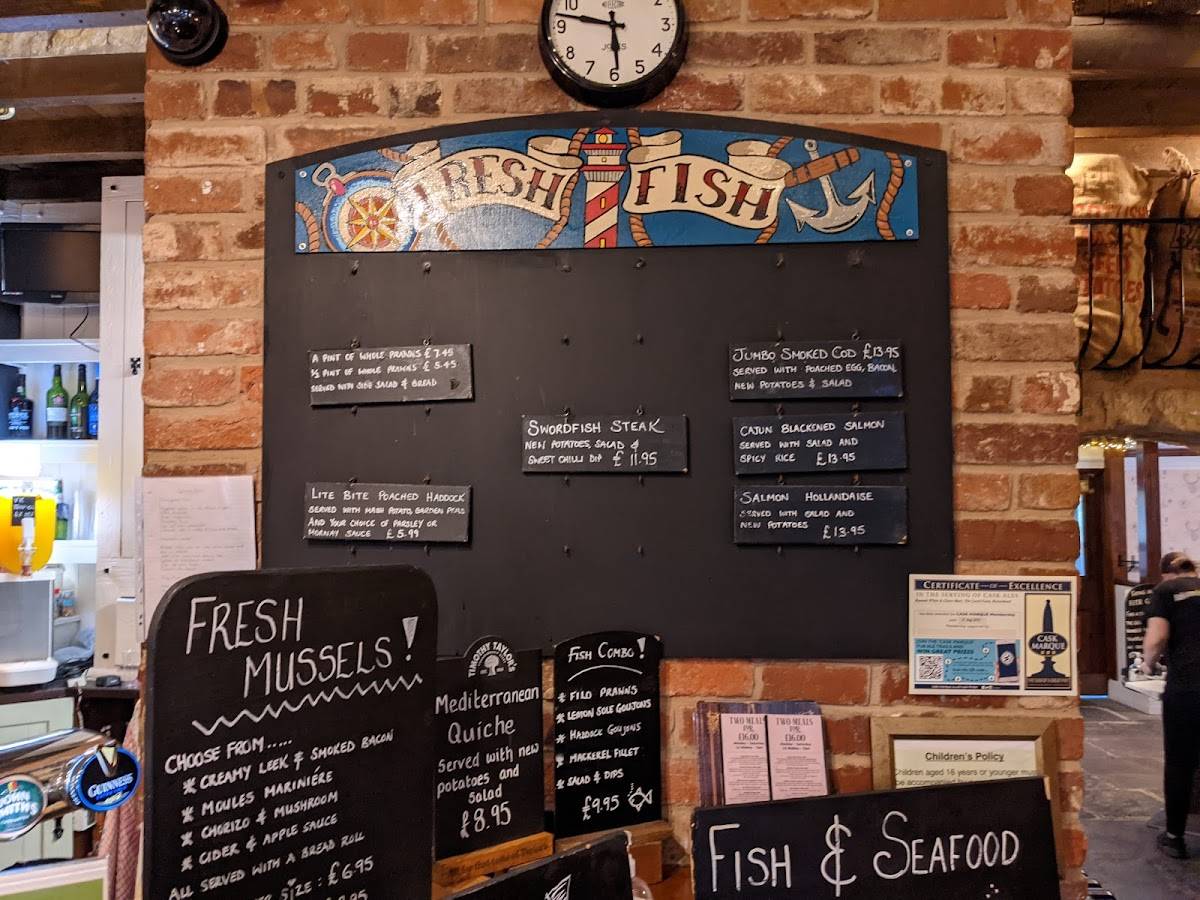 9
3
8
4
7
6
5
FRESH FISH
A PINT OF WHOLE PRAWNS £7.45
½ PINT OF WHOLE PRAWNS £5.45
SERVED WITH SIDE SALAD & BREAD
JUMBO SMOKED COD £13.95
SERVED WITH POACHED EGG, BACON,
NEW POTATOES & SALAD
SWORDFISH STEAK
NEW POTATOES, SALAD &
SWEET CHILLI DIP £11.95
CAJUN BLACKENED SALMON
SERVED WITH SALAD AND
SPICY RICE £13.95
LITE BITE POACHED HADDOCK
SERVED WITH MASH POTATO, GARDEN PEAS
AND YOUR CHOICE OF PARSLEY OR
MORNAY SAUCE £5.99
SALMON HOLLANDAISE
SERVED WITH SALAD AND
NEW POTATOES £13.95
FRESH
MUSSELS!
CHOOSE FROM.....
* CREAMY LEEK & SMOKED BACON
* MOULES MARINIÈRE
* CHORIZO & MUSHROOM
* CIDER & APPLE SAUCE
ALL SERVED WITH A BREAD ROLL
SIZE: £6.95
TIMOTHY TAYLOR'S
Mediterranean
Quiche
served with new
potatoes and
salad
£8.95
FISH COMBO!
* FILO PRAWNS
* LEMON SOLE GOUJONS
* HADDOCK GOUJONS
* MACKEREL FILLET
* SALAD & DIPS
£9.95
CERTIFICATE OF EXCELLENCE
IN THE SERVING OF CASK ALES
WIN GREAT PRIZES
CASK
MARQUE
TWO MEALS
FOR
£16.00
TWO MEALS
FOR
£16.00
Children's Policy
Children aged 16 years or younger must
be accompanied
FISH & SEAFOOD
GUINNESS
JOHN
SMITH'S